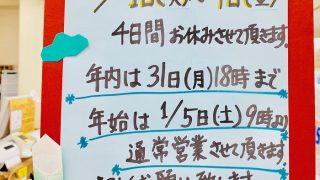 4日間 お休みさせて頂きます。
年内は 31日(月)18時まで
年始は 1/5日(土)9時より
通常営業させて頂きます。
お願い致します